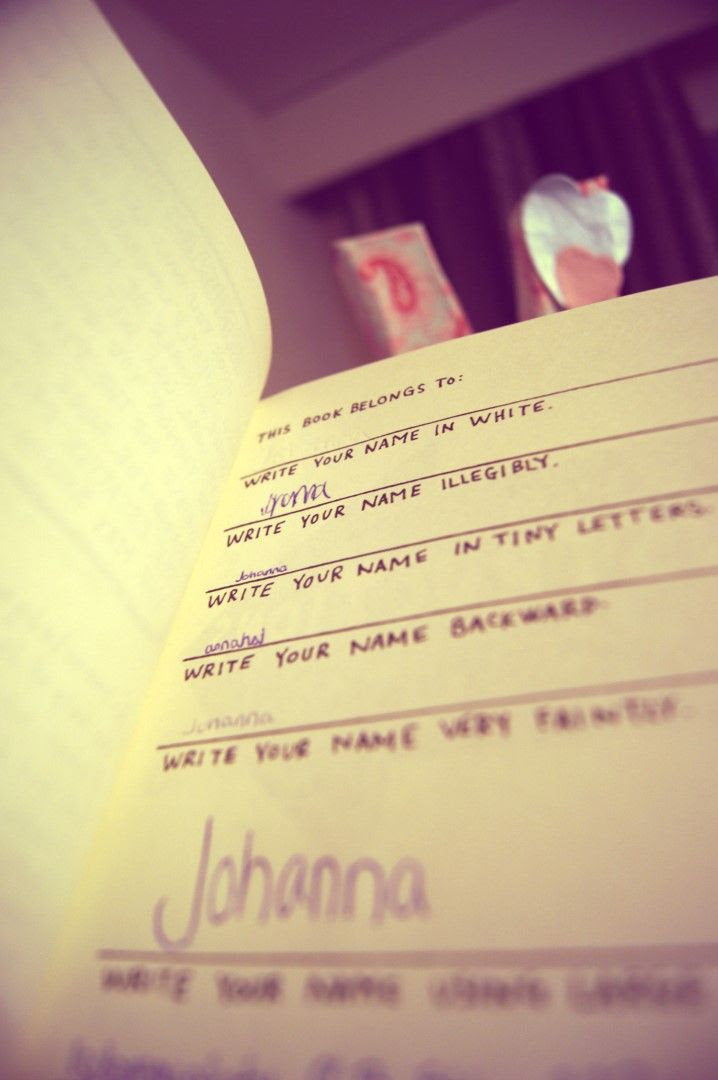 THIS BOOK BELONGS TO:
WRITE YOUR NAME IN WHITE.
WRITE YOUR NAME ILLEGIBLY.
Johanna
WRITE YOUR NAME IN TINY LETTERS.
annahoj
WRITE YOUR NAME BACKWARD.
Johanna
WRITE YOUR NAME VERY FAINTLY.
Johanna
WRITE YOUR NAME USING LARGE